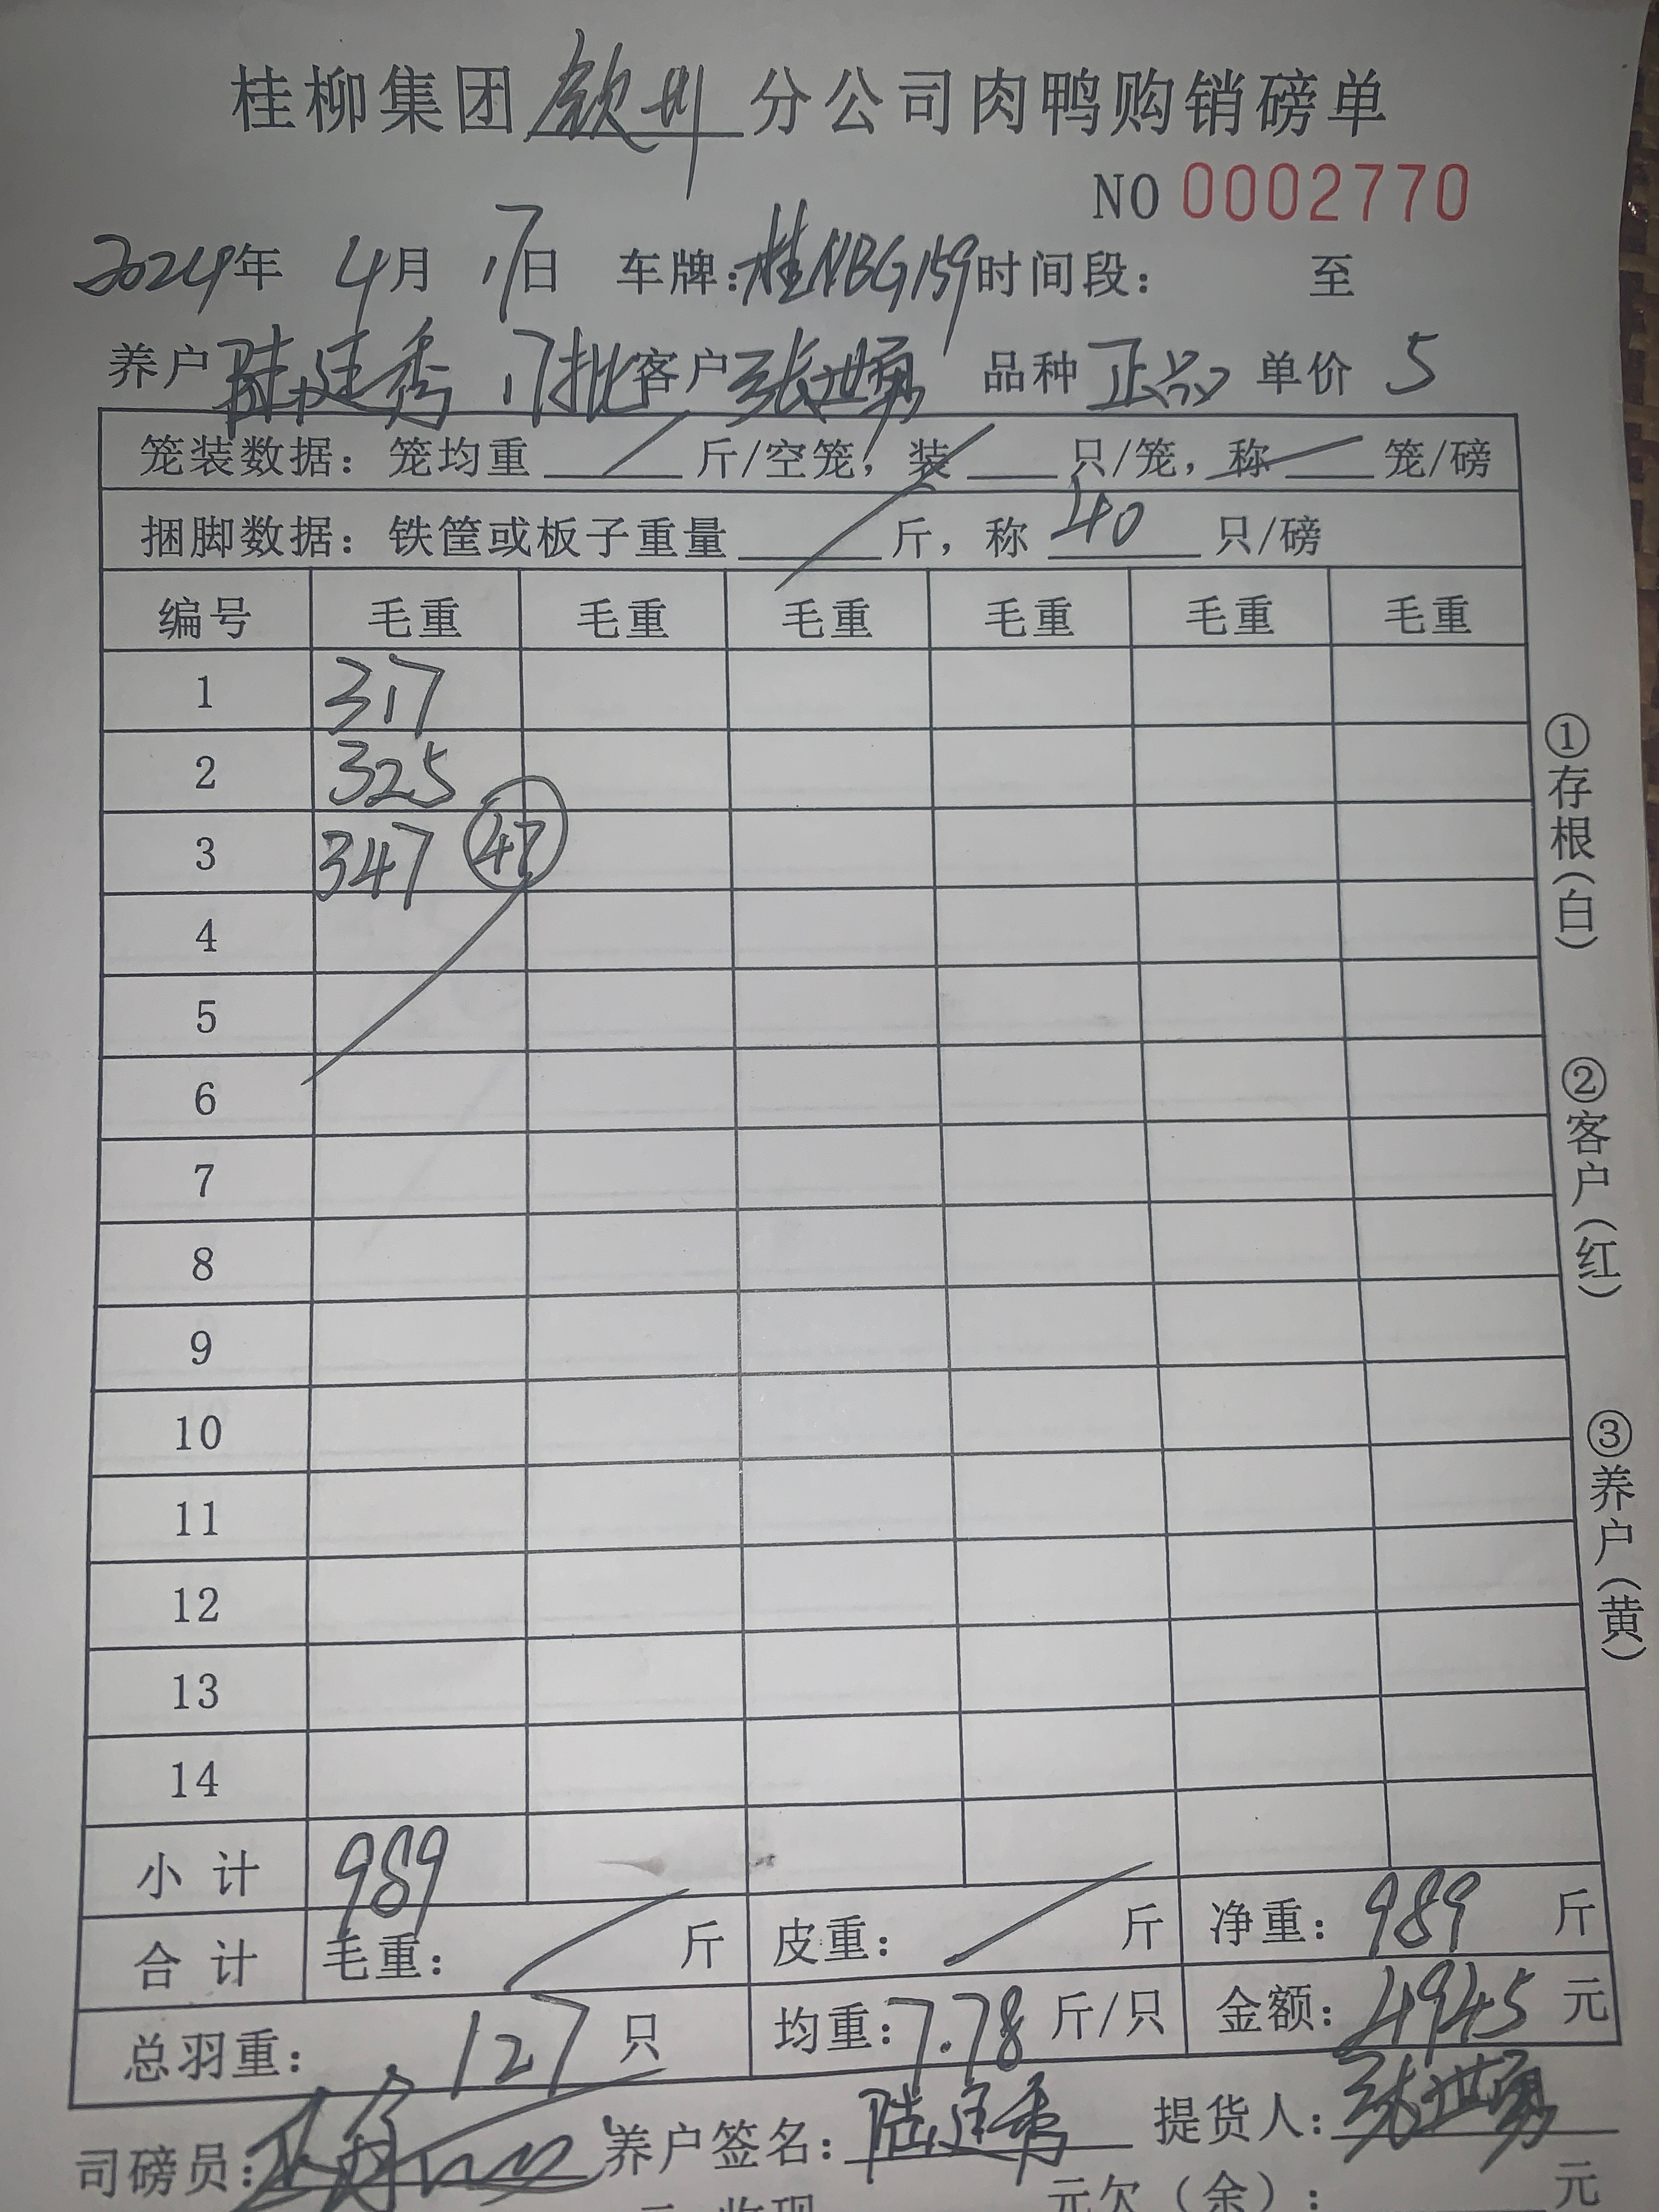 桂柳集团钦州分公司肉鸭购销磅单
NO 0002770
2024年 4月 17日 车牌:桂NBG159时间段: 至
养户 陆廷秀 17批客户 张世勇 品种 正品 单价 5
笼装数据: 笼均重 / 斤/空笼, 装 / 只/笼, 称 / 笼/磅
捆脚数据: 铁筐或板子重量 / 斤, 称 40 只/磅
编号 毛重 毛重 毛重 毛重 毛重 毛重
1 317
2 325
3 347 47
4
5
6
7
8
9
10
11
12
13
14
小计 989
合计 毛重: / 斤 皮重: / 斤 净重: 989 斤
总羽重: 127 只 均重: 7.78 斤/只 金额: 4945 元
司磅员: 养户签名: 陆廷秀 提货人: 张世勇
元欠(余): 元
①存根(白)
②客户(红)
③养户(黄)